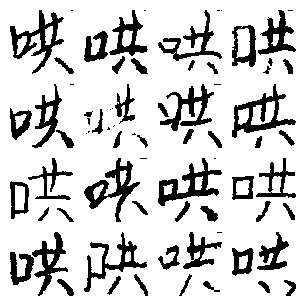 哄哄哄哄
哄哄哄哄
哄哄哄哄
哄哄哄哄